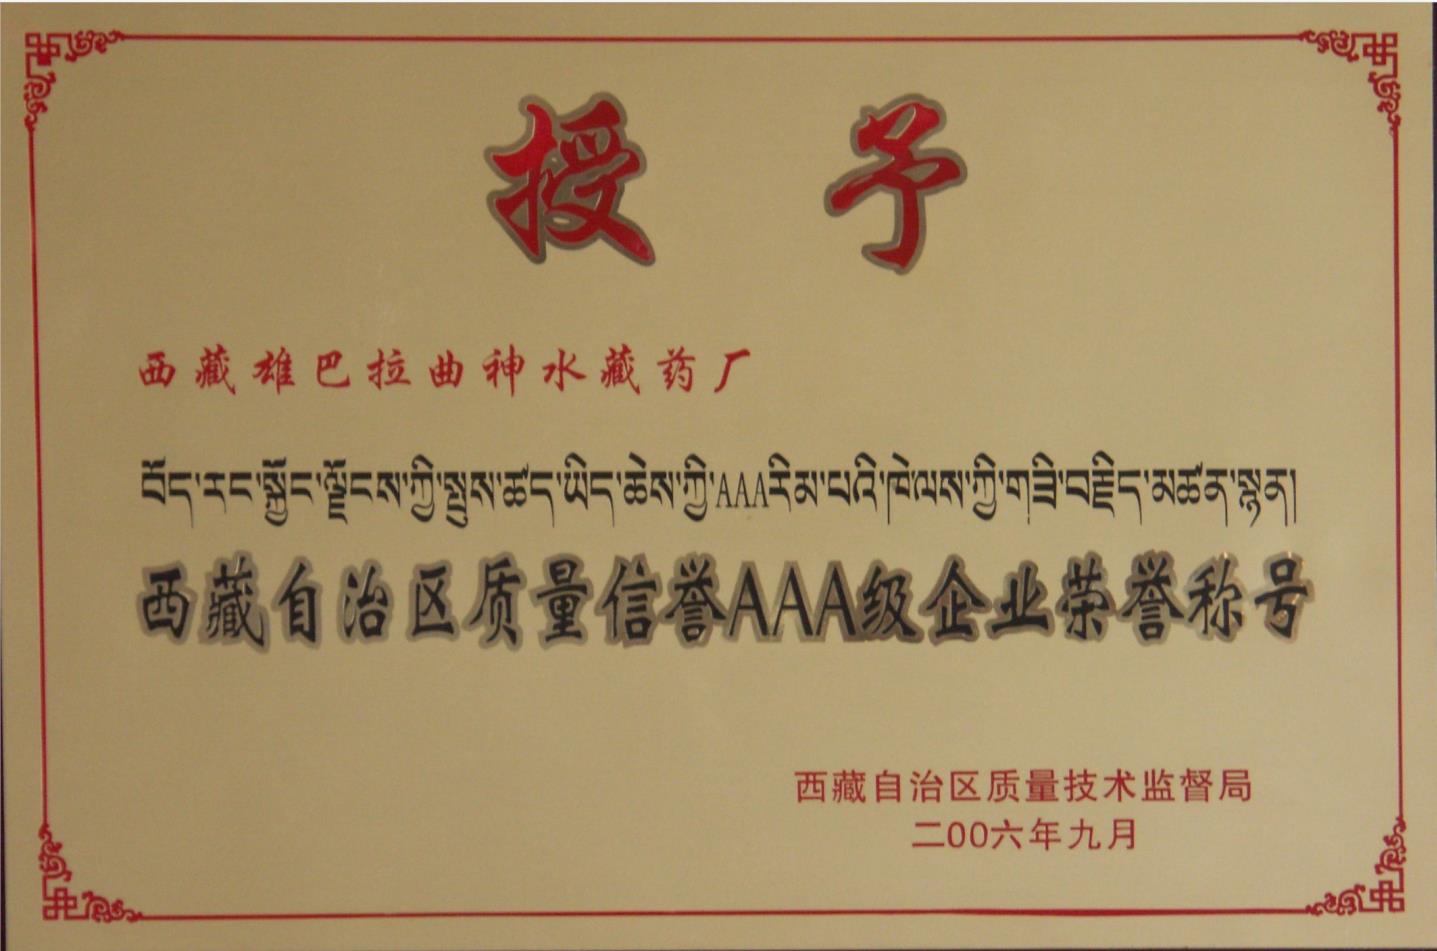 授 予
西藏雄巴拉曲神水藏药厂
བོད་རང་སྐྱོང་ལྗོངས་ཀྱི་སྤུས་ཚད་ཡིད་ཆེས་ཀྱི་AAAརིམ་པའི་ཁེ་ལས་ཀྱི་གཟི་བརྗིད་མཚན་སྙན།
西藏自治区质量信誉AAA级企业荣誉称号
西藏自治区质量技术监督局
二00六年九月